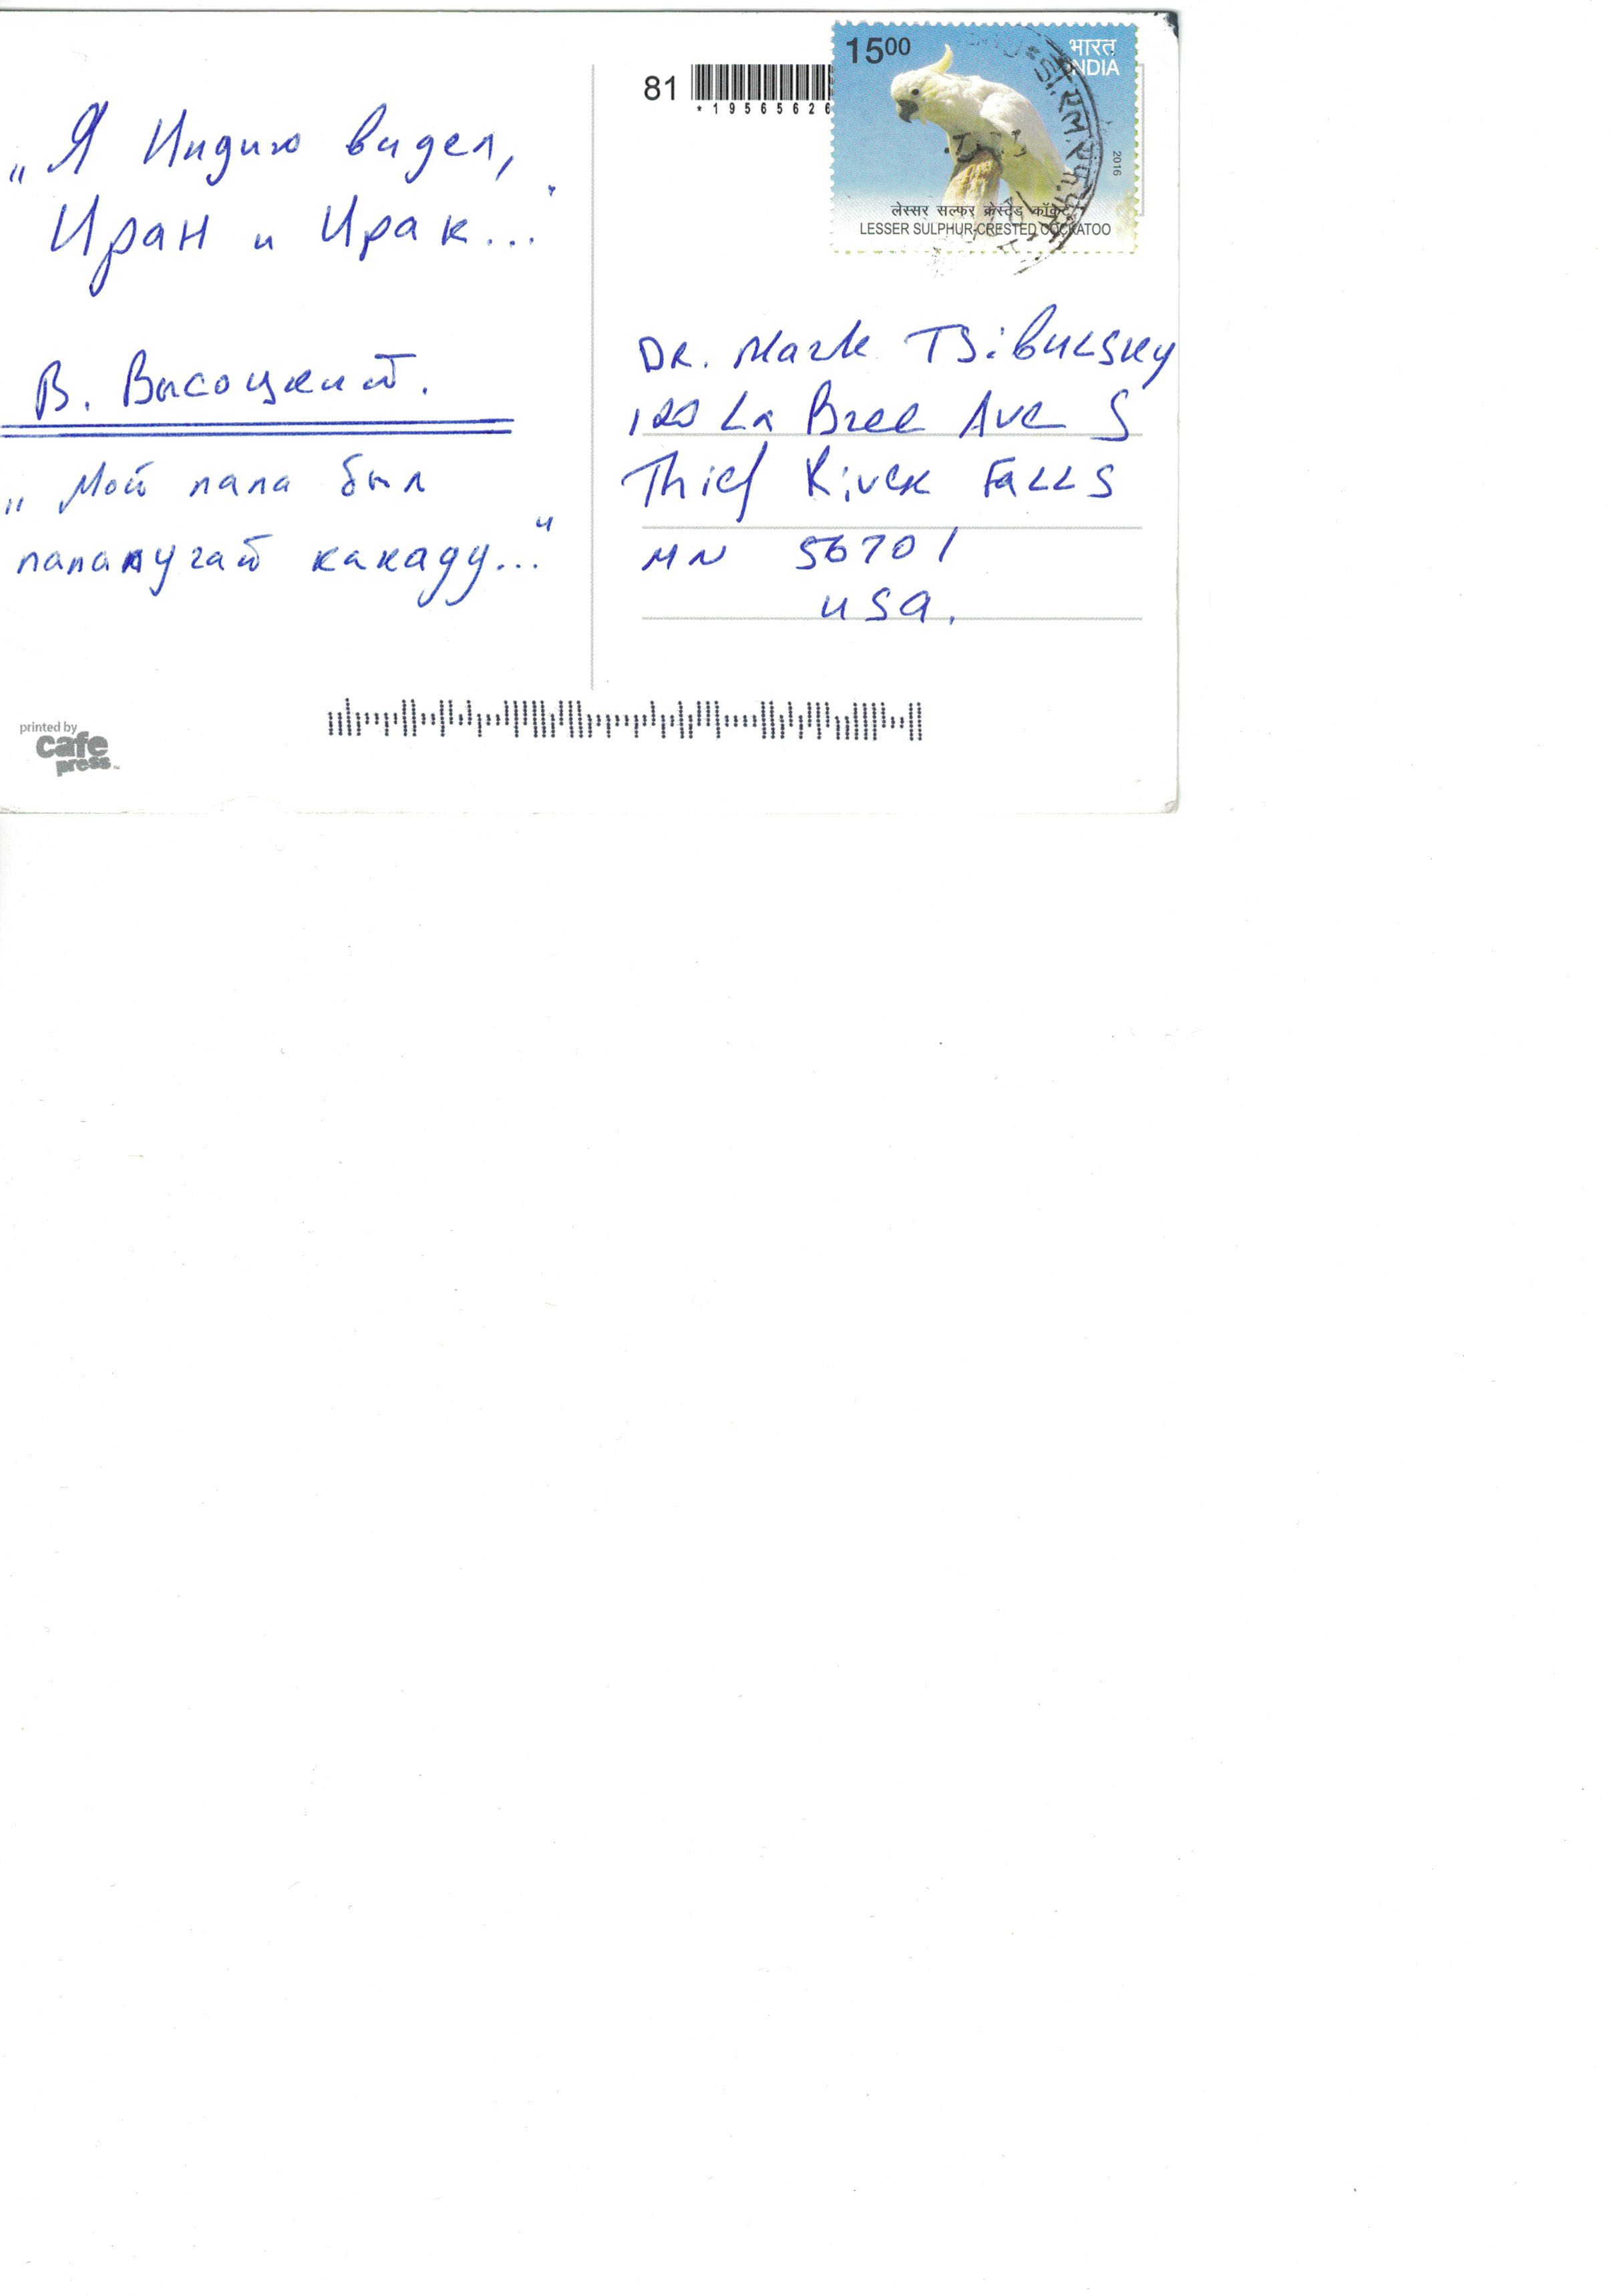 „Я Индию видел,
Иран и Ирак..."
В. Высоцкий.
„Мой папа был
папапугай какаду..."
printed by
cafe
press
81
*19565626
1500
भारत
INDIA
2016
लेस्सर सल्फर क्रेस्टेड कॉकटू
LESSER SULPHUR-CRESTED COCKATOO
DR. Mark TSibuLSky
120 La Bree Ave S
Thief River FaLLS
MN 56701
USA.